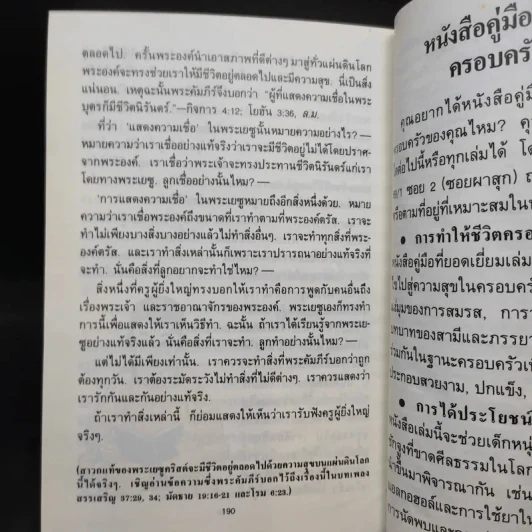 ตลอดไป. ครั้นพระองค์นำเอาสภาพที่ดีต่างๆ มาสู่ทั่วแผ่นดินโลก
พระองค์จะทรงช่วยเราให้มีชีวิตอยู่ตลอดไปและมีความสุข. นี่เป็นสิ่ง
แน่นอน. เหตุฉะนั้นพระคัมภีร์จึงบอกว่า "ผู้ที่แสดงความเชื่อในพระ
บุตรก็มีชีวิตนิรันดร์."—กิจการ 4:12; โยฮัน 3:36, ล.ม.
ที่ว่า 'แสดงความเชื่อ' ในพระเยซูนั้นหมายความอย่างไร? —
หมายความว่าเราเชื่ออย่างแท้จริงว่าเราจะมีชีวิตอยู่ไม่ได้โดยปราศ-
จากพระองค์. เราเชื่อว่าพระเจ้าจะทรงประทานชีวิตนิรันดร์แก่เรา
โดยทางพระเยซู. ลูกเชื่ออย่างนั้นไหม? —
'การแสดงความเชื่อ' ในพระเยซูหมายถึงอีกสิ่งหนึ่งด้วย. หมาย
ความว่าเราเชื่อพระองค์ถึงขนาดที่เราทำตามที่พระองค์ตรัส. เราจะ
ทำไม่เพียงบางสิ่งบางอย่างแล้วไม่ทำสิ่งอื่นๆ. เราจะทำทุกสิ่งที่พระ-
องค์ตรัส. และเราทำสิ่งเหล่านั้นก็เพราะเราปรารถนาอย่างแท้จริงที่
จะทำ. นั่นคือสิ่งที่ลูกอยากจะทำใช่ไหม? —
สิ่งหนึ่งที่ครูผู้ยิ่งใหญ่ทรงบอกให้เราทำคือการพูดกับคนอื่นถึง
เรื่องพระเจ้า และราชอาณาจักรของพระองค์. พระเยซูเองก็ทรงทำ
การนี้เพื่อแสดงให้เราเห็นวิธีทำ. ฉะนั้น ถ้าเราได้เรียนรู้จากพระเย-
ซูอย่างแท้จริงแล้ว นั่นคือสิ่งที่เราจะทำ. ลูกทำอย่างนั้นไหม? —
แต่ไม่ได้มีเพียงเท่านั้น. เราควรจะทำสิ่งที่พระคัมภีร์บอกว่าถูก
ต้องทุกวัน. เราต้องระมัดระวังไม่ทำสิ่งที่ไม่ดีต่างๆ. เราควรแสดงว่า
เรารักกันและกันอย่างแท้จริง.
ถ้าเราทำสิ่งเหล่านี้ ก็ย่อมแสดงให้เห็นว่าเรารับฟังครูผู้ยิ่งใหญ่
จริงๆ.
(สาวกแท้ของพระเยซูคริสต์จะมีชีวิตอยู่ตลอดไปด้วยความสุขบนแผ่นดินโลก
นี้ได้จริงๆ. เชิญอ่านข้อความซึ่งพระคัมภีร์บอกไว้ถึงเรื่องนี้ในบทเพลง
สรรเสริญ 37:29, 34; มัดธาย 19:16-21 และโรม 6:23.)
190
หนังสือคู่มือ
ครอบครัว
คุณอยากได้หนังสือคู่มือ
ครอบครัวของคุณไหม? คุ
ต่อไปนี้หรือทุกเล่มได้ โด
69/1 ซอย 2 (ซอยผาสุก) ถ
หรือตามที่อยู่ที่เหมาะสมใน
● การทำให้ชีวิตครอ
หนังสือคู่มือที่ยอดเยี่ยมเล่ม
ไปสู่ความสุขในครอบครั
แง่มุมของการสมรส, การ
บทบาทของสามีและภรรยา
ร่วมกันในฐานะครอบครัวเ
ประกอบสวยงาม, ปกแข็ง,
● การได้ประโยชน์
หนังสือเล่มนี้จะช่วยเด็กหนุ่
รักจูงที่ขาดศีลธรรมในโลก
นำขึ้นมาพิจารณากัน เช่น,
แอลกอฮอล์และการใช้ยาใน
การนัดพบและการ